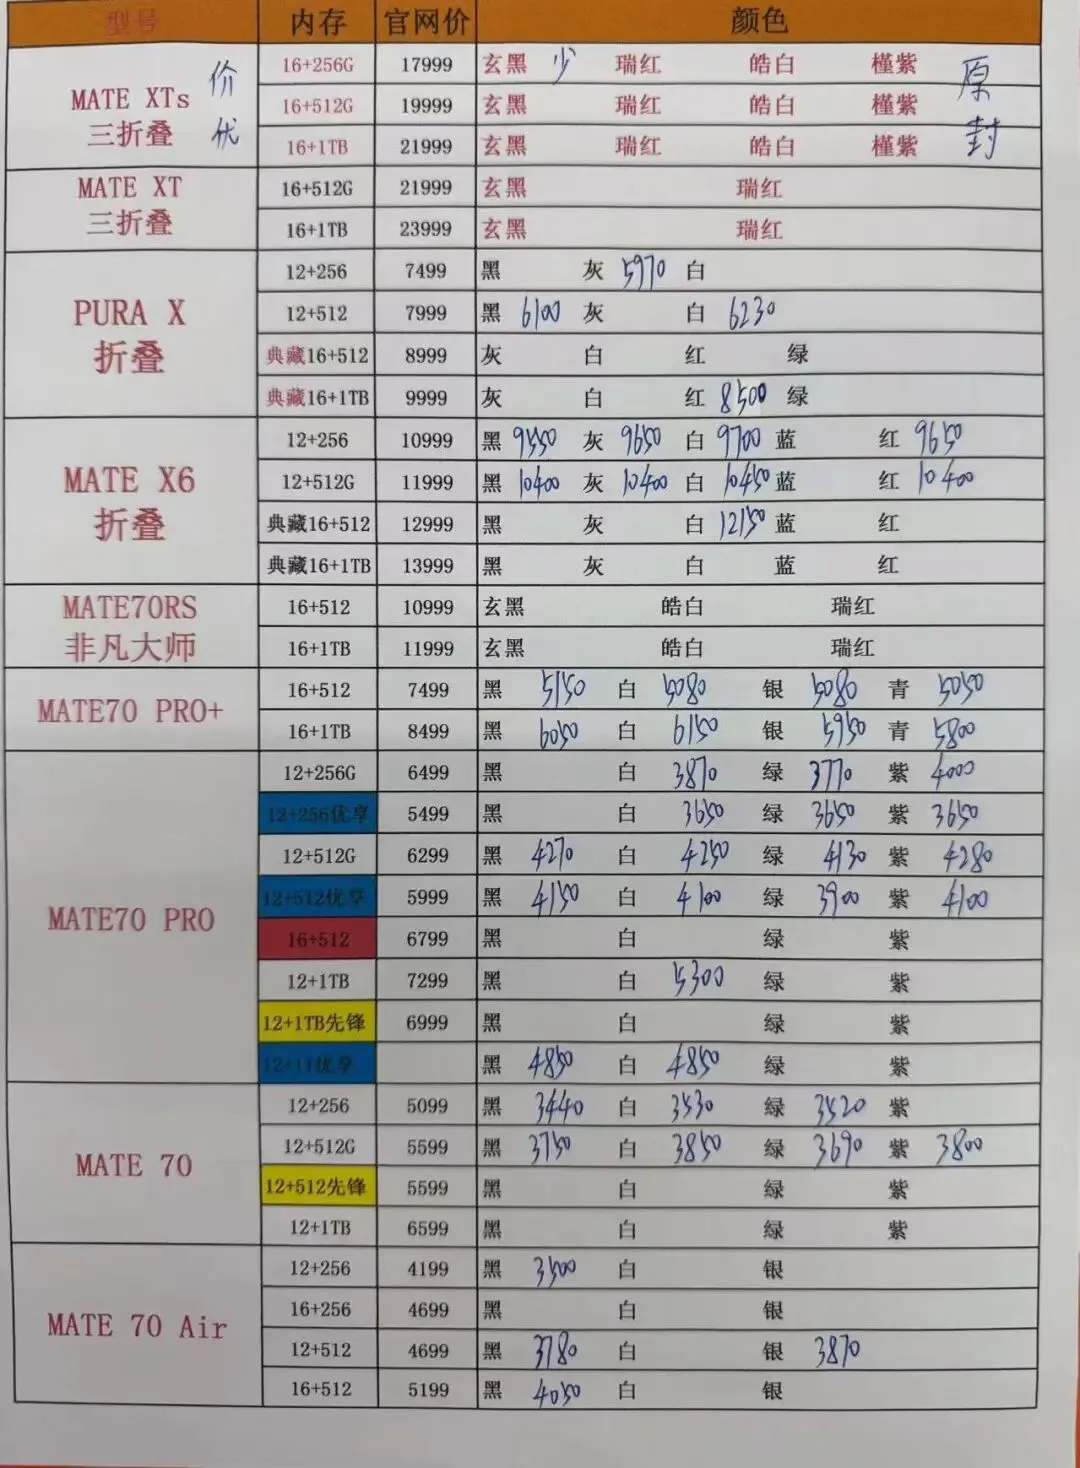 型号 内存 官网价 颜色
MATE XTs 三折叠 价优 16+256G 17999 玄黑 少 瑞红 皓白 槿紫 原封
16+512G 19999 玄黑 瑞红 皓白 槿紫
16+1TB 21999 玄黑 瑞红 皓白 槿紫
MATE XT 三折叠 16+512G 21999 玄黑 瑞红
16+1TB 23999 玄黑 瑞红
PURA X 折叠 12+256 7499 黑 灰 5970 白
12+512 7999 黑 6100 灰 白 6230
典藏16+512 8999 灰 白 红 绿
典藏16+1TB 9999 灰 白 红 8500 绿
MATE X6 折叠 12+256 10999 黑 9550 灰 9650 白 9700 蓝 红 9650
12+512G 11999 黑 10400 灰 10400 白 10450 蓝 红 10400
典藏16+512 12999 黑 灰 白 12150 蓝 红
典藏16+1TB 13999 黑 灰 白 蓝 红
MATE70RS 非凡大师 16+512 10999 玄黑 皓白 瑞红
16+1TB 11999 玄黑 皓白 瑞红
MATE70 PRO+ 16+512 7499 黑 5150 白 5080 银 5080 青 5050
16+1TB 8499 黑 6050 白 6150 银 5950 青 5800
MATE70 PRO 12+256G 6499 黑 白 3870 绿 3770 紫 4000
12+256优享 5499 黑 白 3650 绿 3650 紫 3650
12+512G 6299 黑 4270 白 4250 绿 4130 紫 4280
12+512优享 5999 黑 4150 白 4100 绿 3900 紫 4100
16+512 6799 黑 白 绿 紫
12+1TB 7299 黑 白 5300 绿 紫
12+1TB先锋 6999 黑 白 绿 紫
12+1T优享 黑 4850 白 4850 绿 紫
MATE 70 12+256 5099 黑 3440 白 3530 绿 3520 紫
12+512G 5599 黑 3750 白 3850 绿 3690 紫 3800
12+512先锋 5599 黑 白 绿 紫
12+1TB 6599 黑 白 绿 紫
MATE 70 Air 12+256 4199 黑 3500 白 银
16+256 4699 黑 白 银
12+512 4699 黑 3780 白 银 3870
16+512 5199 黑 4050 白 银